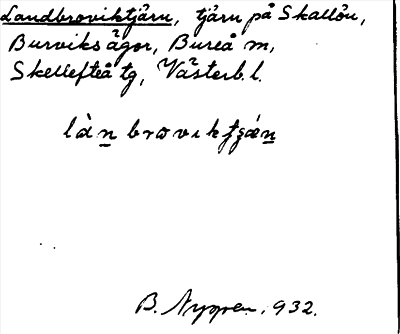 Landbroviktjärn, tjärn på Skallön,
Burviks ägor, Bureå m,
Skellefteå tg, Västerb. l.
là̱n brovıkt̡ʒæ̀n
B. Nygren. 932.